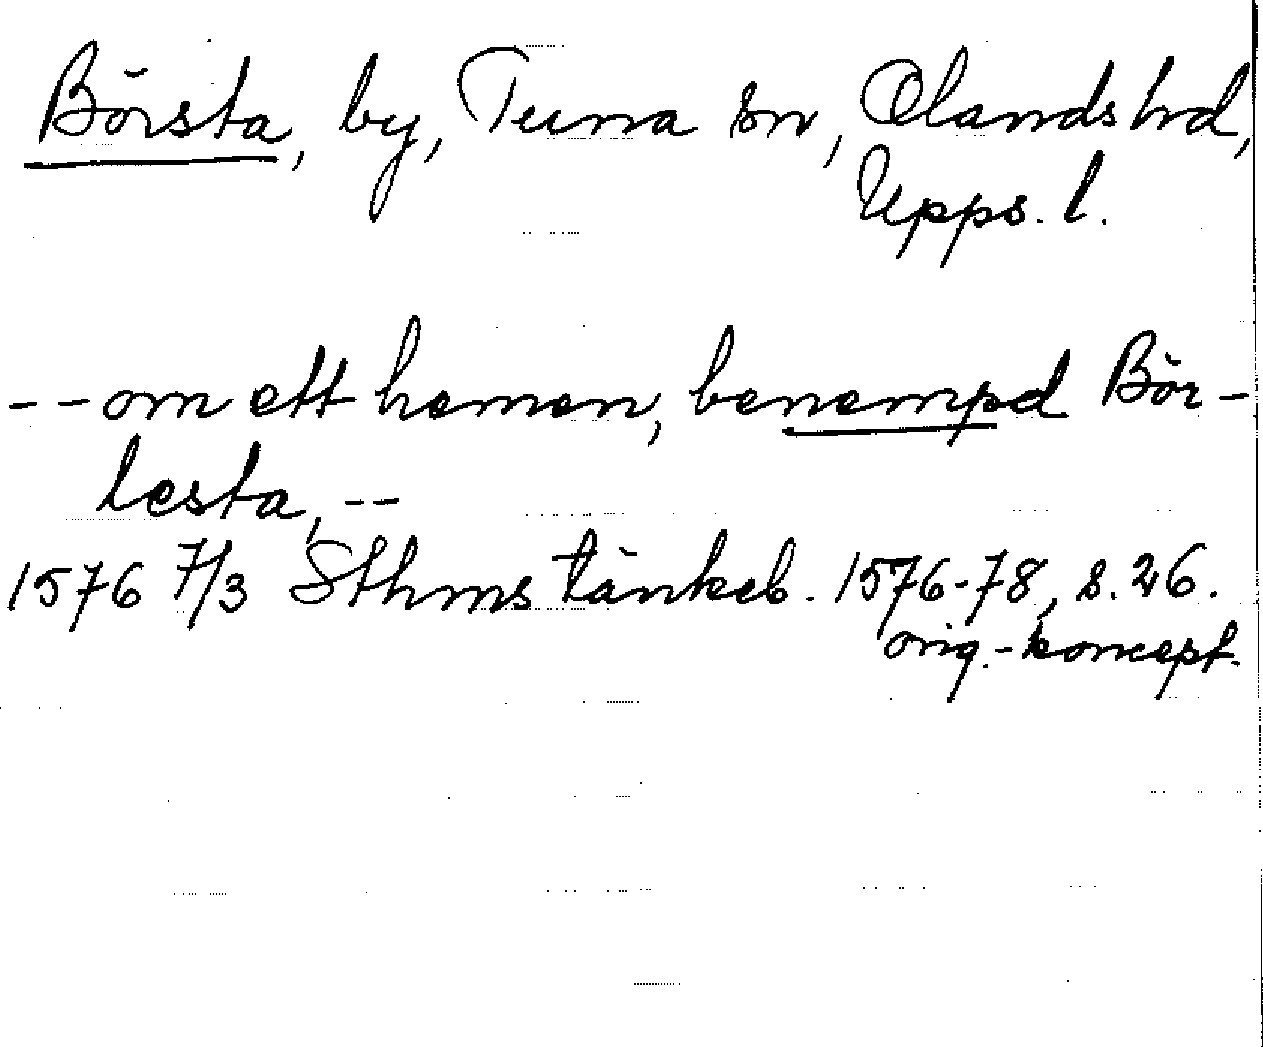 Börsta, by, Tuna sn, Olands hd,
Upps. l.
-- om ett hemen, benempd Bör-
lesta, --
1576 7/3 Sthms tänkeb. 1576-78, s. 26.
orig.-koncept.